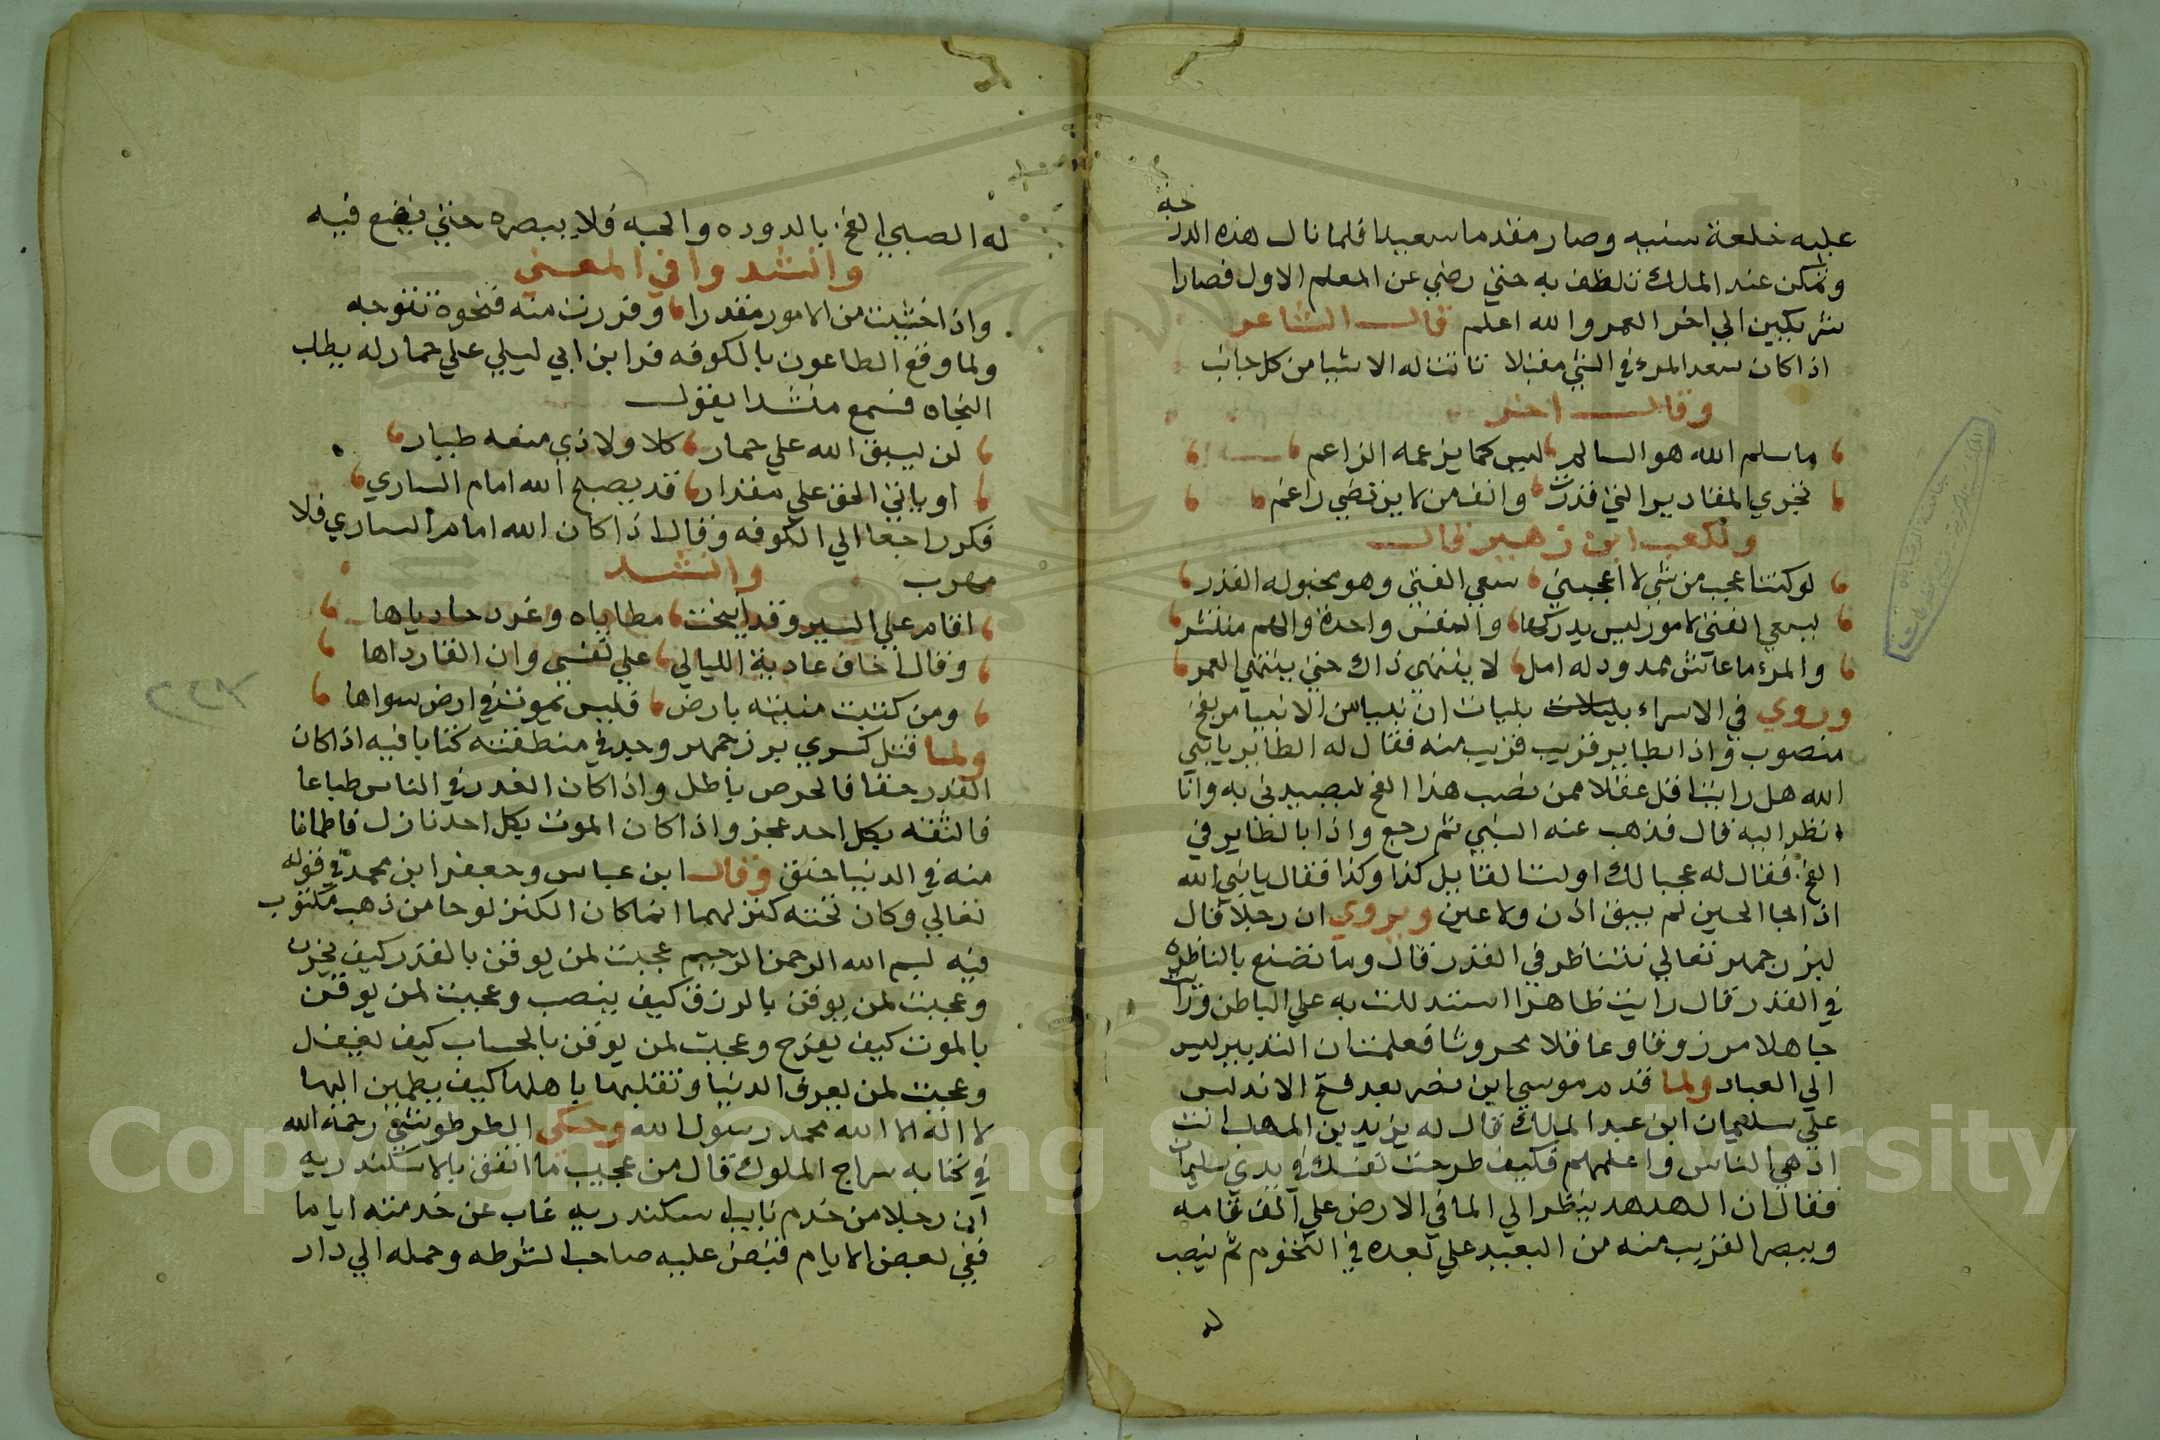 عليه خلعة سنيه وصار مقدما سعيدا فلما نال هذه الدر
جة
وتمكن عند الملك تلطف به حتي رضي عن المعلم الاول فصارا
شريكين الي اخر العمر والله اعلم قال الشاعر
اذا كان سعد المرء في الشي مقبلا تاتت له الاشيا من كل جانب
وقال اخر
ما سلم الله هو السالم ليس كما يزعمه الزاعم
تجري المقادير التي قدرت وانف من لا يرتضي راغم
ولكعب ابن زهير قال
لو كنت اعجب من شي لاعجبني سعي الفتي وهو مخبو له القدر
يسعي الفتي لامور ليس يدركها والنفس واحدة والهم منتشر
والمرء ما عاش ممدود له امل لا ينتهي ذاك حتي ينتهي العمر
وروي في الاسراء يليات ان نبيا من الانبيا مر بفخ
منصوب واذا بطاير قريب قريب منه فقال له الطاير يا نبي
الله هل رايت اقل عقلا ممن نصب هذا الفخ ليصيدني به وانا
انظر اليه قال فذهب عنه النبي ثم رجع واذا بالطاير في
الفخ فقال له عجبا لك اولست القايل كذا وكذا فقال يا نبي الله
اذا جا الحين لم يبق اذن ولا عين ويروي ان رجلا قال
لبزرجمهر تعالي نتناظر في القدر قال وما تصنع بالناظره
في القدر قال رايت ظاهرا استدللت به علي الباطن ورات
جاهلا مرزوقا وعاقلا محروما فعلمت ان التدبير ليس
الي العباد ولما قدم موسي ابن نصر بعد فتح الاندلس
علي سليمان ابن عبد الملك قال له يزيد بن المهلب انت
ادهي الناس واعلمهم فكيف طرحت نفسك في يدي سليمان
فقال ان الهدهد ينظر الي الما في الارض علي الف قامه
ويبصر القريب منه من البعيد علي بعده في التخوم ثم ينصب
له
له الصبي الفخ بالدوده والحبه فلا يبصره حتي يقع فيه
وانشدوا في المعني
واذا خشيت من الامور مقدرا وفررت منه فنحوه تتوجه
ولما وقع الطاعون بالكوفه فر ابن ابي ليلي علي حمار له يطلب
النجاه فسمع منشدا يقول
لن يسبق الله علي حمار كلا ولا ذي منعه طيار
او ياتي الحق علي مقدار قد يصبح الله امام الساري
فكر راجعا الي الكوفه وقال اذا كان الله امام الساري فلا
مهرب وانشد
اقام علي السير وقد انيخت مطاياه وغرد حادياها
وقال اخاف عادية الليالي علي نفسي وان القا رداها
ومن كتبت منيته بارض فليس يموت في ارض سواها
ولما قتل كسري بزرجمهر وجد في منطقته كتابا فيه اذا كان
القدر حقا فالحرص باطل واذا كان الغدر في الناس طباعا
فالثقه بكل احد عجز واذا كان الموت بكل احد نازل فاطمانا
منه في الدنيا حمق وقال ابن عباس وجعفر ابن محمد في قوله
تعالي وكان تحته كنز لهما انما كان الكنز لوحا من ذهب مكتوب
فيه بسم الله الرحمن الرحيم عجبت لمن يوقن بالقدر كيف يحزن
وعجبت لمن يوقن بالرزق كيف ينصب وعجبت لمن يوقن
بالموت كيف يفرح وعجبت لمن يوقن بالحساب كيف يغفل
وعجبت لمن يعرف الدنيا وتقلبها باهلها كيف يطمين اليها
لا اله الا الله محمد رسول الله وحكي الطرطوشي رحمه الله
في كتابه سراج الملوك قال من عجيب ما اتفق بالاسكندريه
ان رجلا من خدم نايب اسكندريه غاب عن خدمته اياما
ففي بعض الايام قبض عليه صاحب الشرطه وحمله الي دار
Copyright © King Saud University